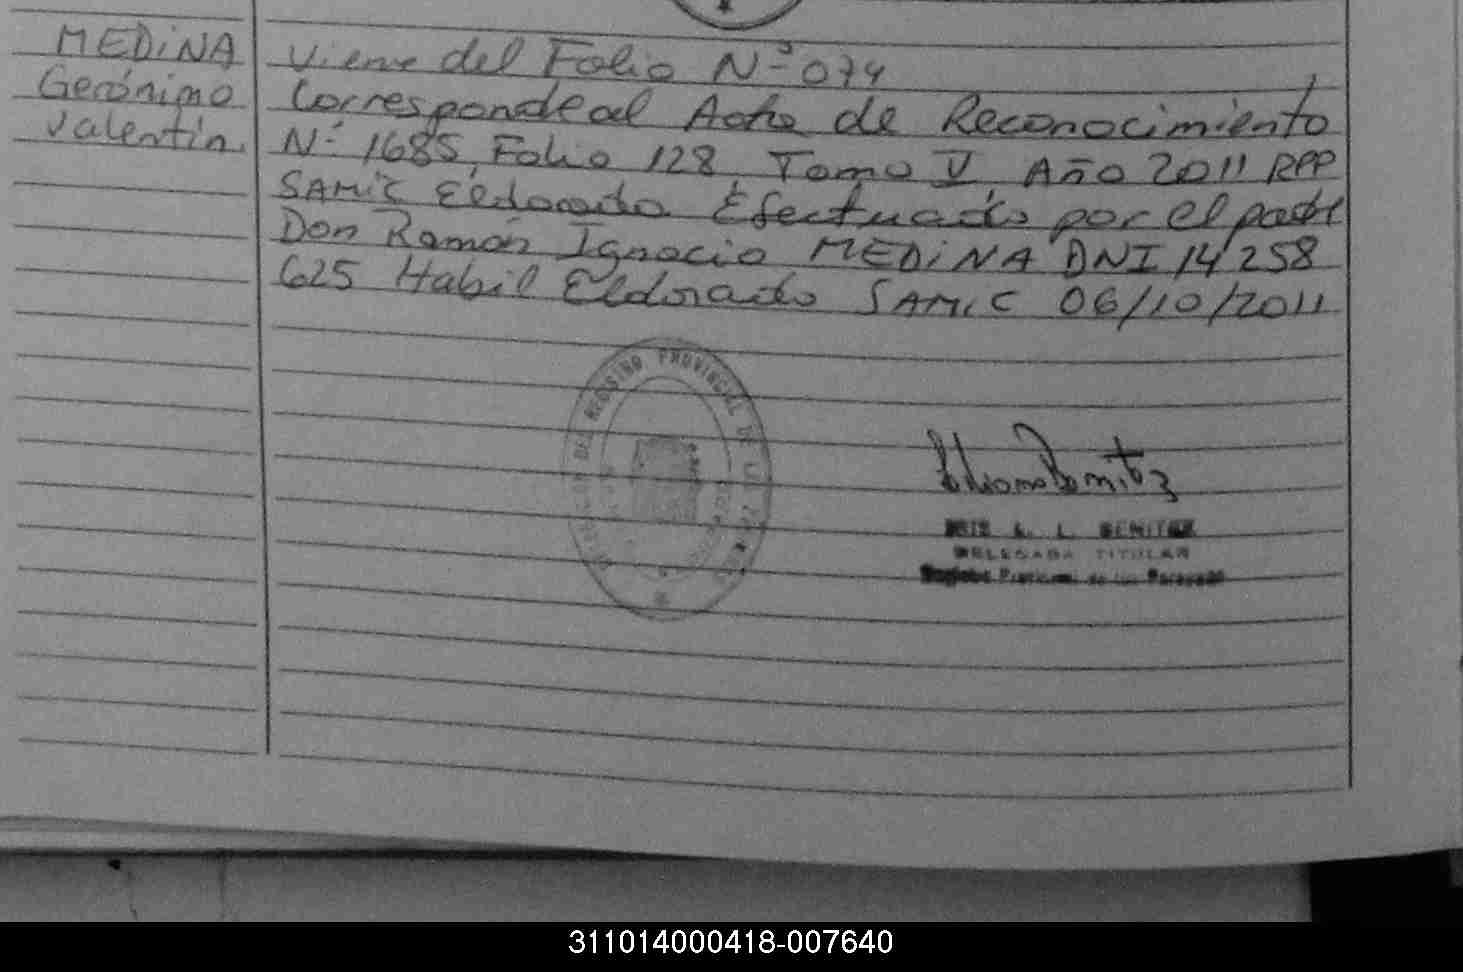 MEDINA
Gerónimo
Valentín.
Viene del Folio Nº 074
Corresponde al Acta de Reconocimiento
Nº 1685, Folio 128, Tomo V, Año 2011 RPP
SAMIC Eldorado Efectuado por el padre
Don Ramón Ignacio MEDINA DNI 14 258
625 Habil Eldorado SAMIC 06/10/2011
REGISTRO PROVINCIAL DE
BENITEZ
DELEGADA TITULAR
311014000418-007640